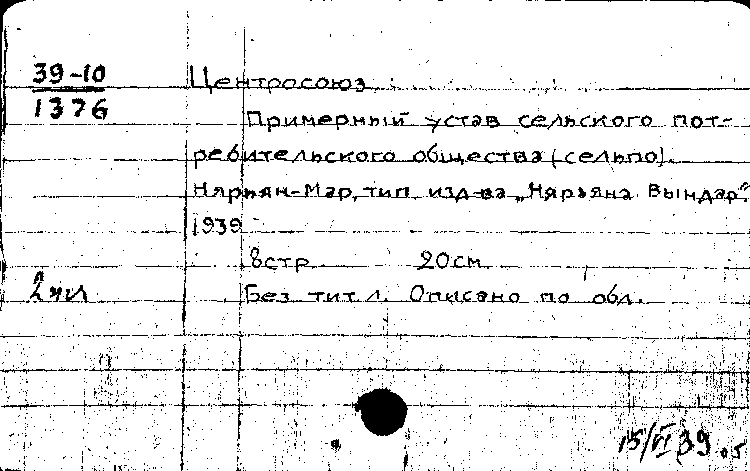 39-10
1376
Центросоюз
Примерный устав сельского пот-
ребительского общества (сельпо).
Нарьян-Мар, тип. изд-ва „Няръяна Вындар".
1939
8 стр 20 см
Без тит. л. Описано по обл.
15/VI 39